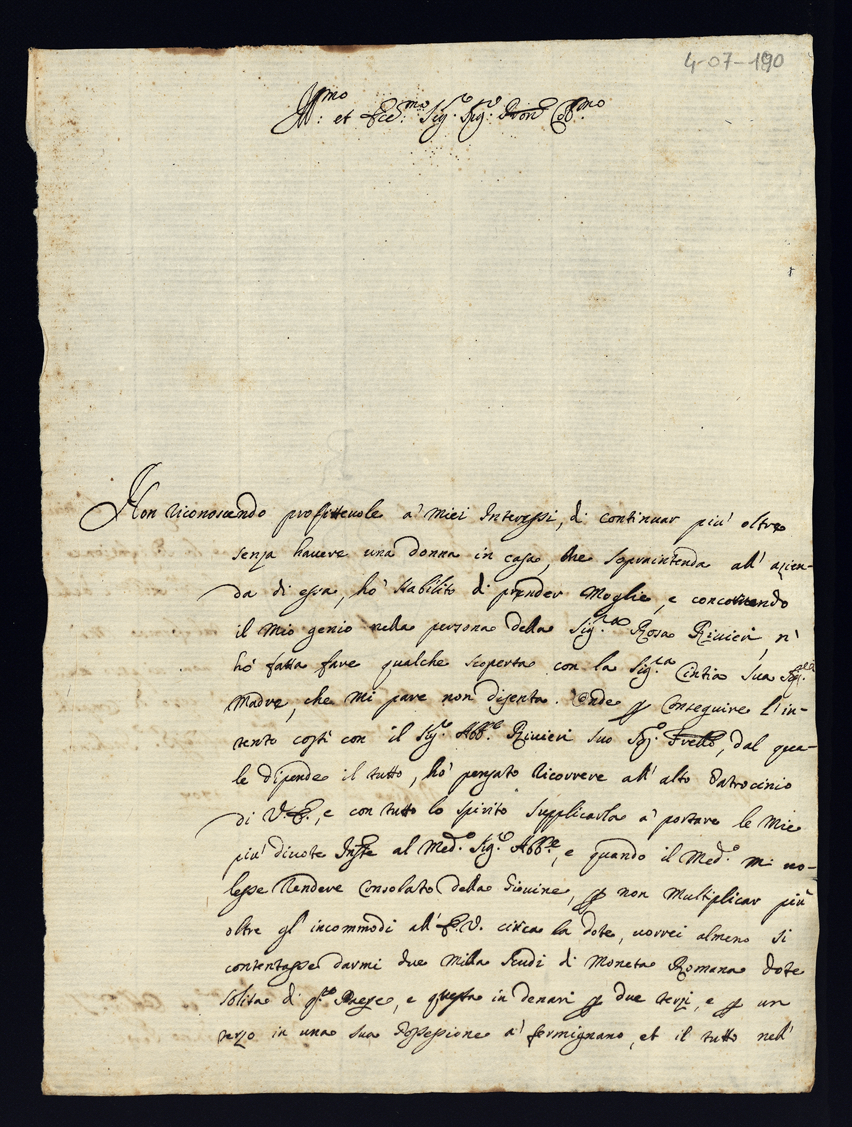 4-07-190
Ill:mo et Ecc:mo Sig.e Sig.e Pron Col:mo
Non riconoscendo profitteuole a' miei Interessi, di continuar piu' oltre
senza hauere una donna in casa, che sopraintenda all' azien-
da di essa, hò stabilito di prender Moglie, e concorrendo
il mio genio nella persona della Sig.ra Rosa Rivieri, n'
hò fatta fare qualche scoperta con la Sig.ra Cintia sua Sig.ra
Madre, che mi pare non disenta. Onde p conseguire l'in-
tento costì con il Sig.e Abb.e Rivieri suo Sig.e Frello, dal qua-
le dipende il tutto, hò pensato ricorrere all' alto Patrocinio
di V.E., e con tutto lo spirito supplicarla a' portare le mie
piu' diuote Inste al Med.o Sig.e Abb.e, e quando il Med.o mi uo-
lesse rendere consolato della Giouine, p non multiplicar piu
oltre gl' incommodi all' E.V. circa la dote, uorrei almeno si
contentasse darmi due milla scudi di moneta Romana dote
solita di q.to Paese, e questa in denari p due terzi, e p un
terzo in una sua Possessione a' fermignano, et il tutto nell'